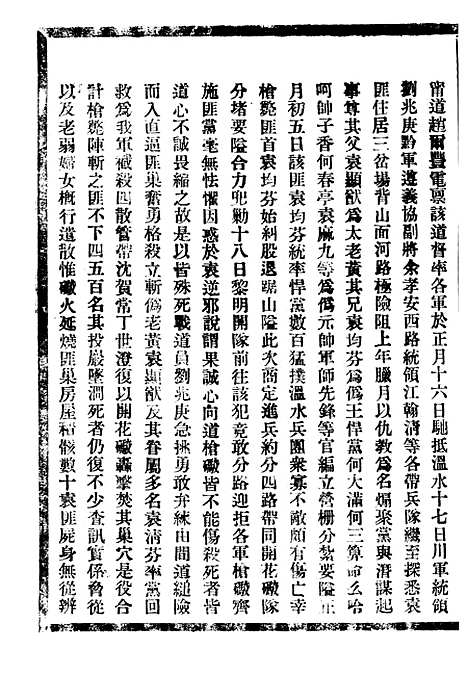 甯道趙爾豐電禀該道督率各軍於正月十六日馳抵溫水十七日川軍統領
劉兆庚黔軍遵義協副將余孝安西路統領江翰清等各帶兵隊繼至探悉袁
匪住居三岔場背山面河路極險阻上年臘月以仇教爲名煽聚黨與潛謀起
事尊其父袁顯猷爲太老黃其兄袁均芬爲僞王悍黨何大滿何三算命么哈
呵帥子香何春亭袁麻九等爲僞元帥軍師先鋒等官編立營柵分紮要隘正
月初五日該匪袁均芬統率悍黨數百猛撲溫水兵團衆寡不敵頗有傷亡幸
槍斃匪首袁均芬始糾股退踞山隘此次商定進兵約分四路帶同開花礮隊
分堵要隘合力兜勦十八日黎明開隊前往該犯竟敢分路迎拒各軍槍礮齊
施匪黨毫無怯懼因惑於袁逆邪說謂果誠心向道槍礮皆不能傷殺死者皆
道心不誠畏縮之故是以皆殊死戰道員劉兆庚急挑勇敢弁練由間道縋險
而入直逼匪巢奮勇格殺立斬僞老黃袁顯猷及其眷屬多名袁清芬率黨回
救爲我軍截殺四散管帶沈賀常丁世澄復以開花礮轟擊焚其巢穴是役合
計槍斃陣斬之匪不下四五百名其投巖墜澗死者仍復不少查訊實係脅從
以及老弱婦女槪行遣散惟礮火延燒匪巢房屋積骸數十袁匪屍身無從辨